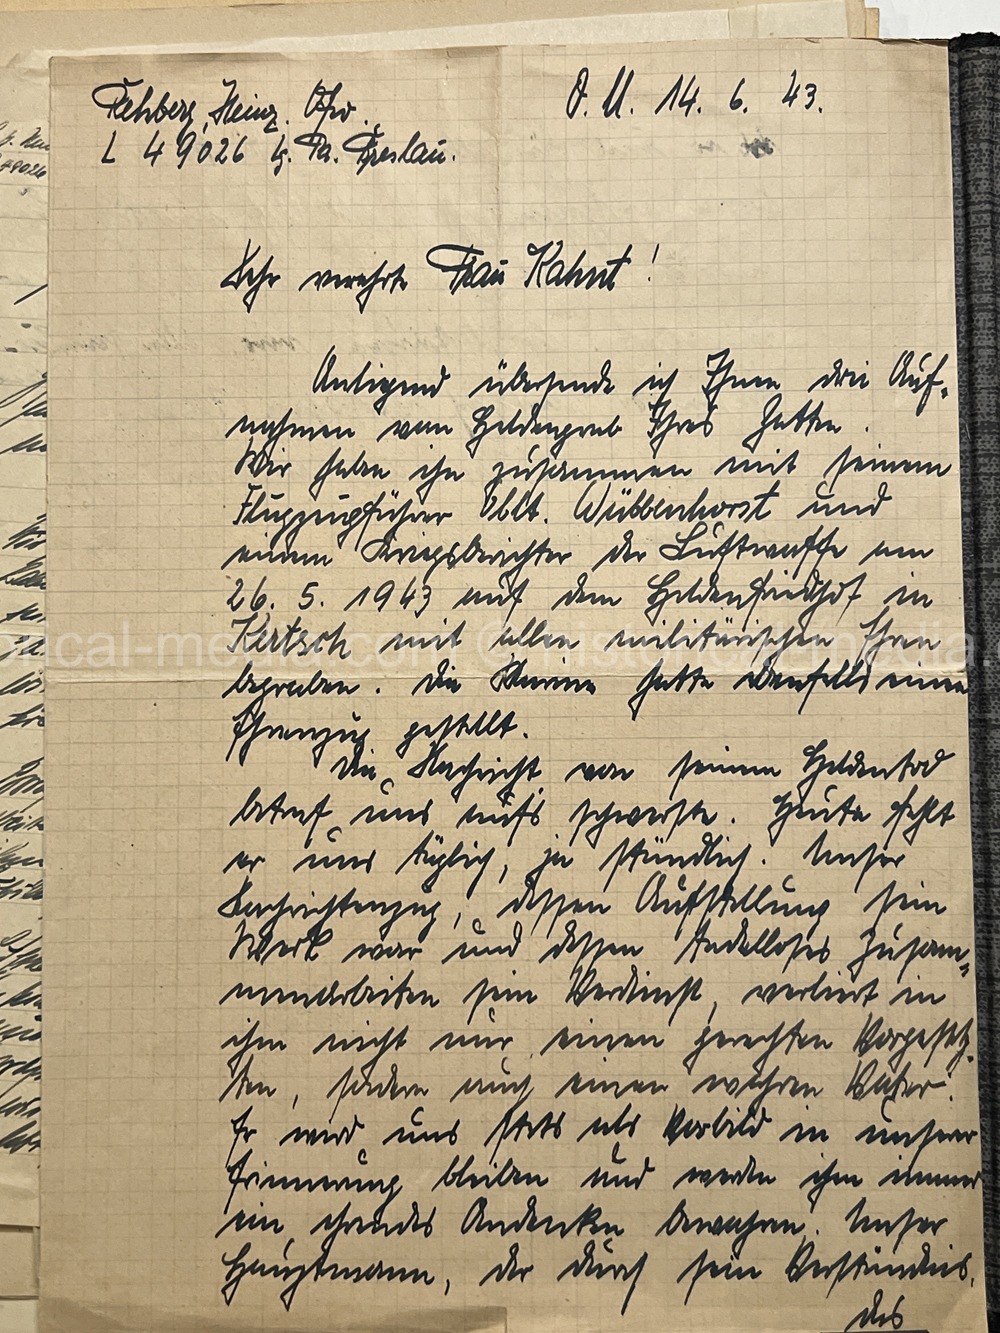 Rehberg, Heinz. Ofw.
L 49026 Lg. Pa. Breslau.
O. U. 14. 6. 43.
Sehr verehrte Frau Kahnt!
Anliegend übersende ich Ihnen drei Auf-
nahmen vom Heldengrab Ihres Gatten.
Wir haben ihn zusammen mit seinem
Flugzeugführer Oblt. Wübbenhorst und
einem Kriegsberichter der Luftwaffe am
26. 5. 1943 auf dem Heldenfriedhof in
Kertsch mit allen militärischen Ehren
begraben. Die Marine hatte ebenfalls einen
Ehrenzug gestellt.
Die Nachricht von seinem Heldentod
betraf uns aufs schwerste. Heute fehlt
er uns täglich, ja stündlich. Unser
Nachrichtenzug, dessen Aufstellung sein
Werk war und dessen tadelloses Zusam-
menarbeiten sein Verdienst, verliert in
ihm nicht nur einen gerechten Vorgesetz-
ten, sondern auch einen wahren Vater.
Er wird uns stets als Vorbild in unserer
Erinnerung bleiben und werden ihm immer
ein ehrendes Andenken bewahren. Unser
Hauptmann, der durch sein Verständnis,
das
historical-media.com © historical-media.com